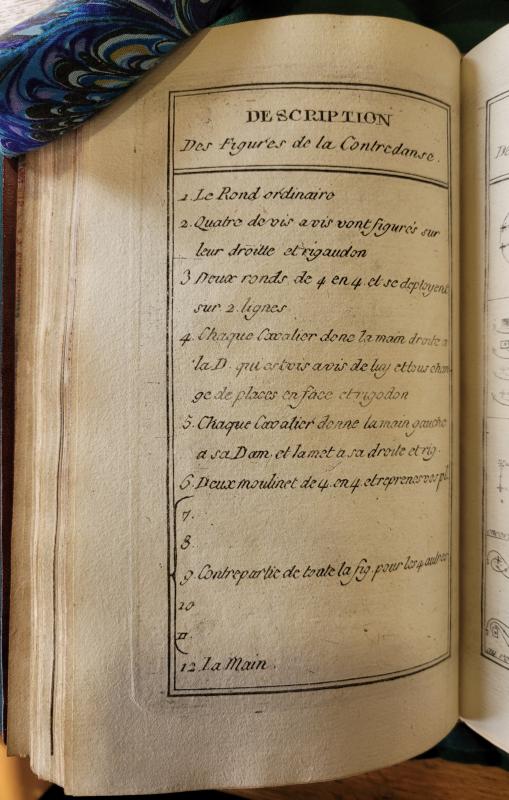 DESCRIPTION
Des Figures de la Contredanse.
1. Le Rond ordinaire
2. Quatre de vis a vis vont figurés sur
leur droitte et rigaudon
3 Deux ronds de 4 en 4. et se deployent
sur 2. lignes
4. Chaque Cavalier done la main droite a
la D. qui est vis a vis de luy et tous chan-
ge de places en face et rigodon
5. Chaque Cavalier donne la main gauche
a sa Dam. et la met a sa droite et rig.
6. Deux moulinet de 4. en 4 et reprenes vos pl.
7.
8.
9. Contrepartie de toute la fig. pour les 4 autres
10
11.
12. La Main.